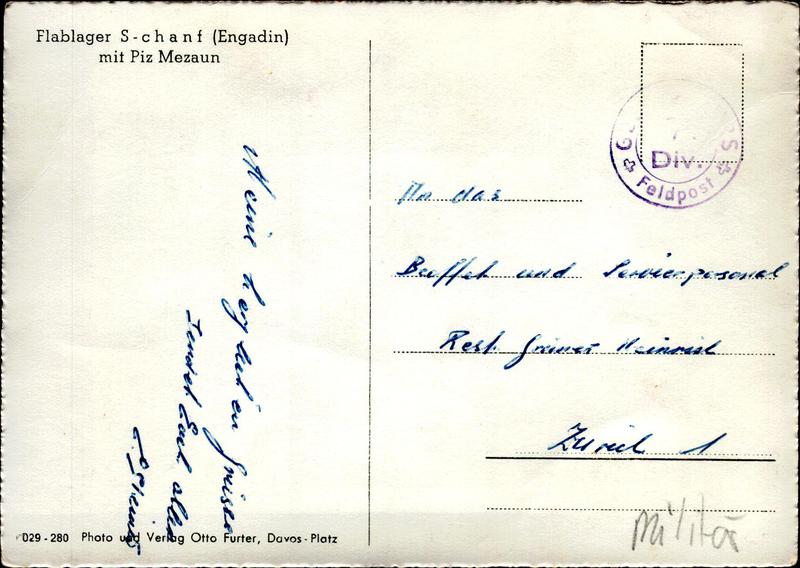 Flablager S-chanf (Engadin)
mit Piz Mezaun
Meine herzlichen Grüsse
sendet Euch allen
Div.
Feldpost
An das
Buffet und Servicepersonal
Rest. Grüner Heinrich
Zürich 1
Militär
029-280 Photo und Verlag Otto Furter, Davos-Platz